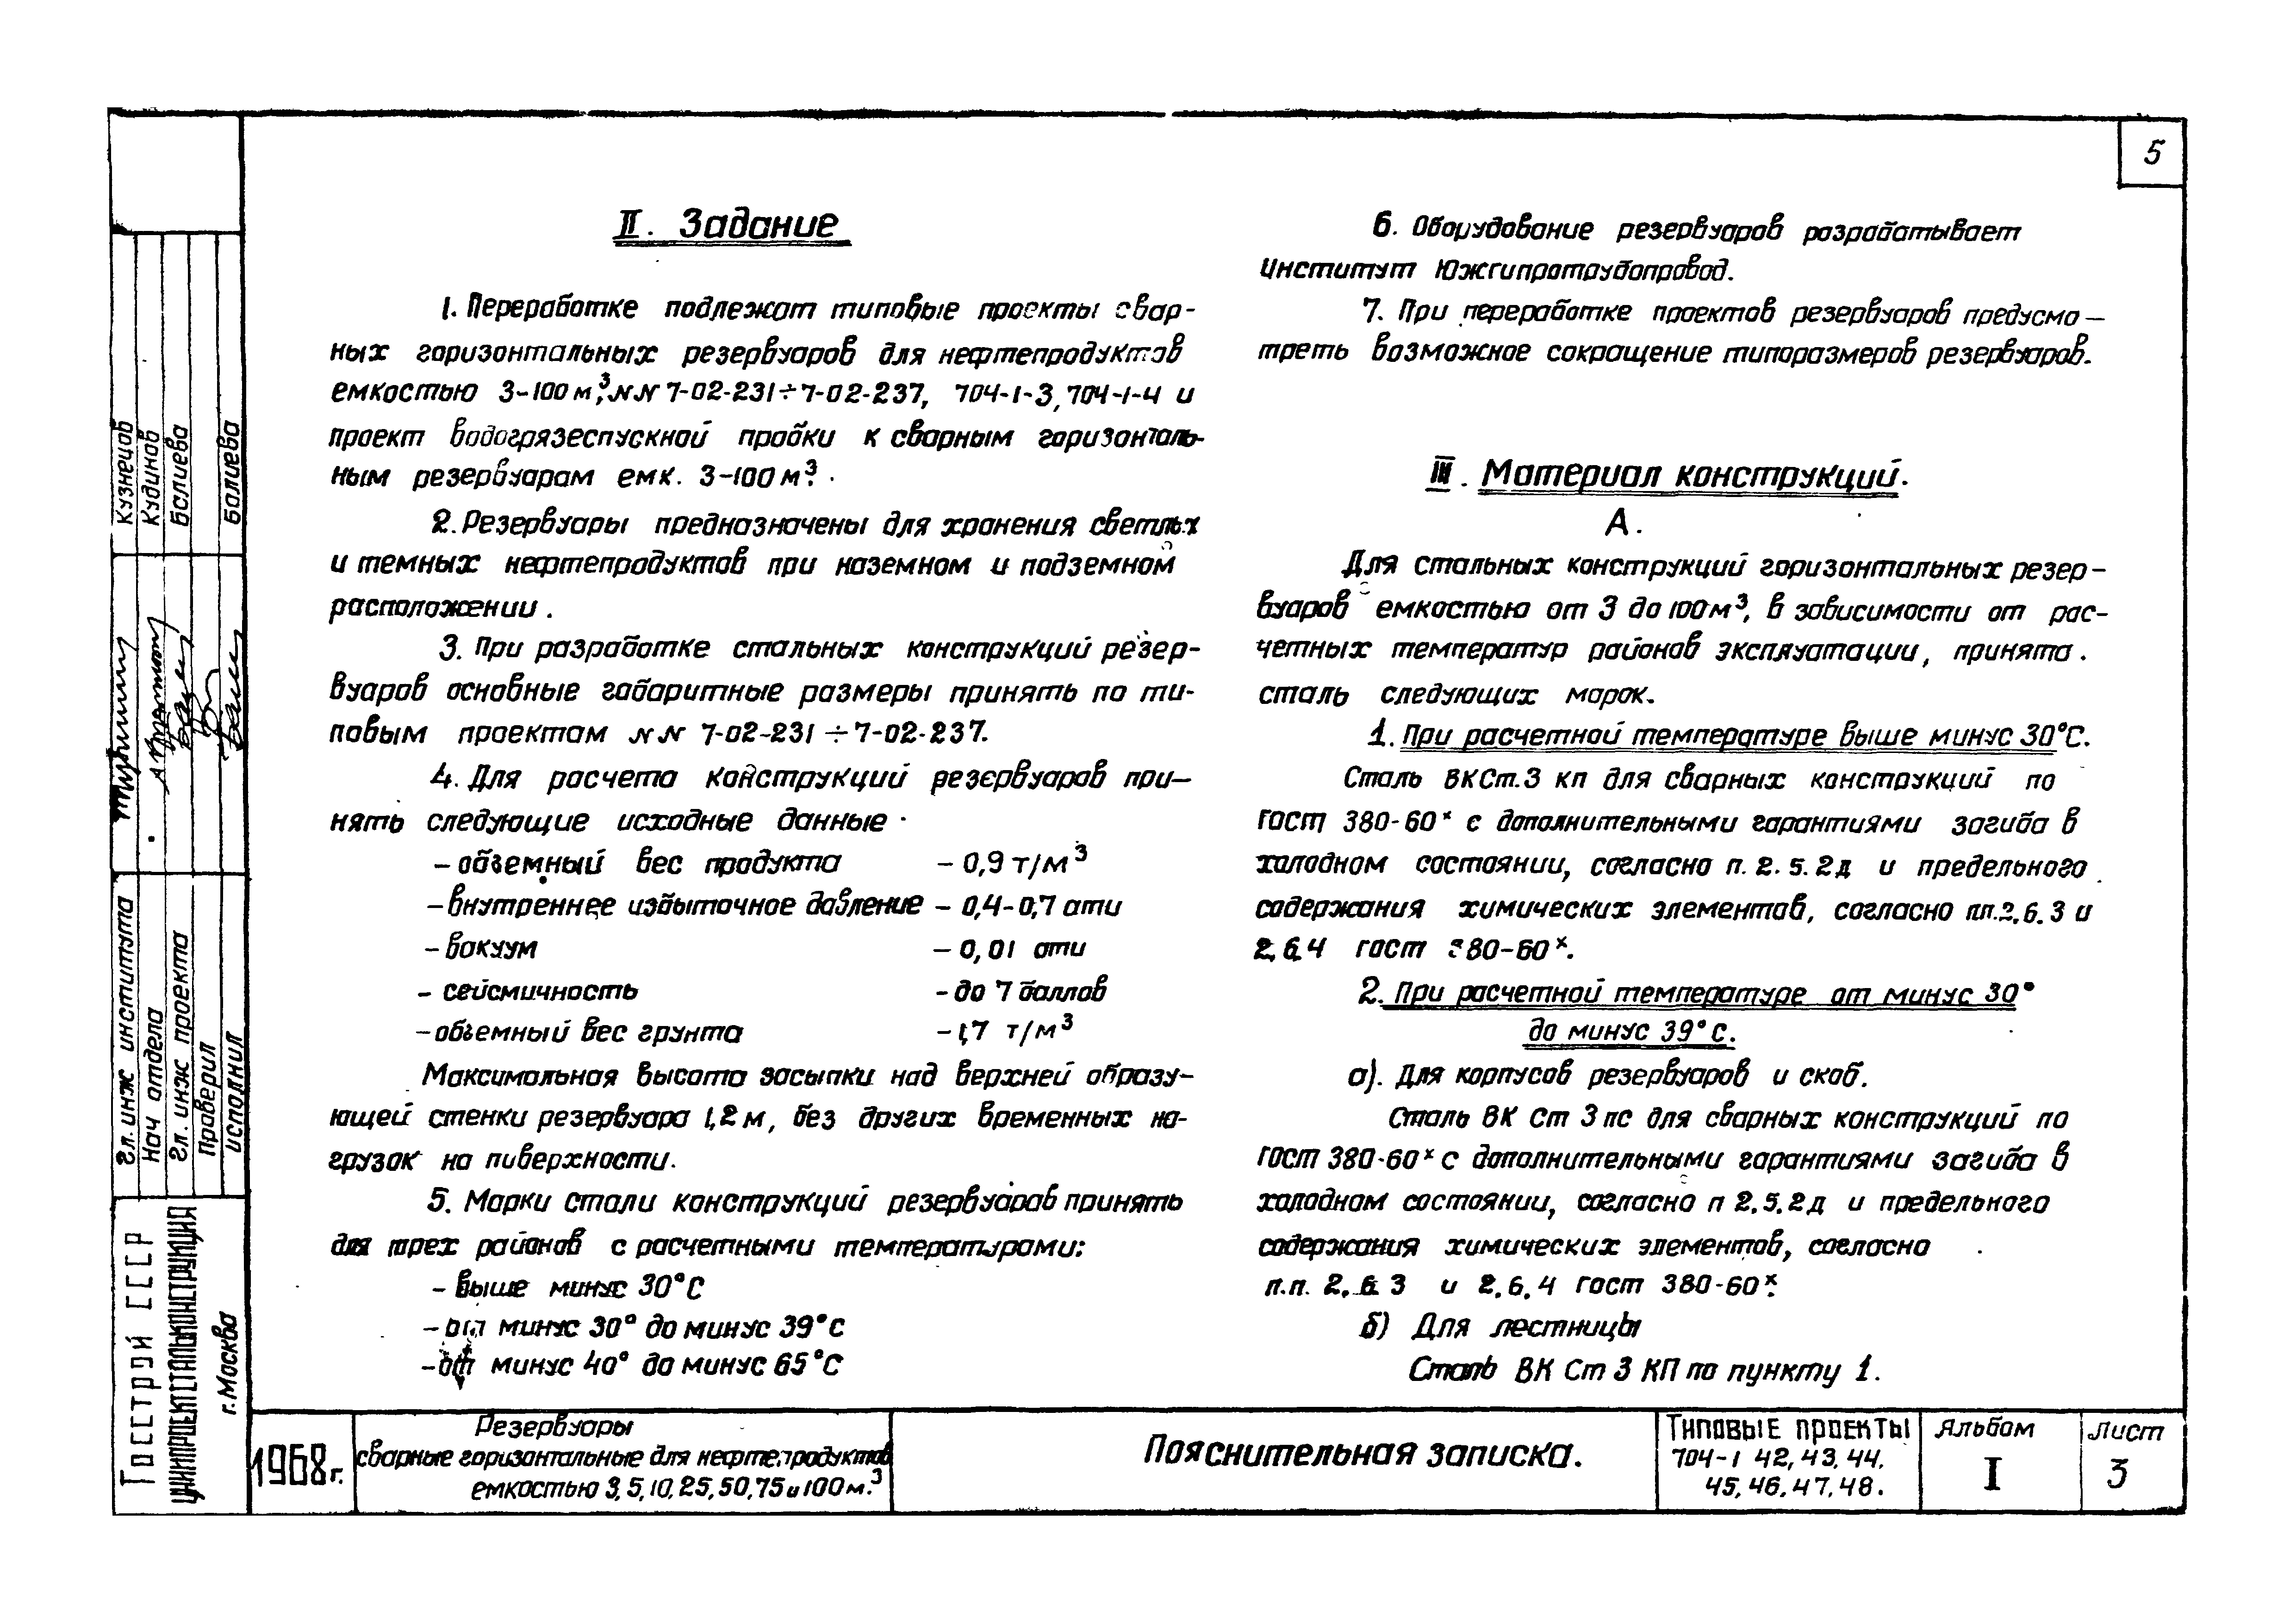 5
II. Задание
1. Переработке подлежат типовые проекты свар-
ных горизонтальных резервуаров для нефтепродуктов
емкостью 3-100 м³, NN 7-02-231÷7-02-237, 704-1-3, 704-1-4 и
проект водогрязеспускной пробки к сварным горизонталь-
ным резервуарам емк. 3-100 м³.
2. Резервуары предназначены для хранения светлых
и темных нефтепродуктов при наземном и подземном
расположении.
3. При разработке стальных конструкций резер-
вуаров основные габаритные размеры принять по ти-
повым проектам NN 7-02-231÷7-02-237.
4. Для расчета конструкций резервуаров при-
нять следующие исходные данные
- объемный вес продукта - 0,9 т/м³
- внутреннее избыточное давление - 0,4-0,7 ати
- вакуум - 0,01 ати
- сейсмичность - до 7 баллов
- объемный вес грунта - 1,7 т/м³
Максимальная высота засыпки над верхней образу-
ющей стенки резервуара 1,2 м, без других временных на-
грузок на поверхности.
5. Марки стали конструкций резервуаров принять
для трех районов с расчетными температурами:
- выше минус 30°С
- от минус 30° до минус 39°С
- от минус 40° до минус 65°С
6. Оборудование резервуаров разрабатывает
институт Южгипротрубопровод.
7. При переработке проектов резервуаров предусмо-
треть возможное сокращение типоразмеров резервуаров.
III. Материал конструкций.
А.
Для стальных конструкций горизонтальных резер-
вуаров емкостью от 3 до 100 м³, в зависимости от рас-
четных температур районов эксплуатации, принята
сталь следующих марок.
1. При расчетной температуре выше минус 30°С.
Сталь ВКСт.3 кп для сварных конструкций по
гост 380-60ˣ с дополнительными гарантиями загиба в
холодном состоянии, согласно п. 2.5.2д и предельного
содержания химических элементов, согласно пп.2.6.3 и
2.6.4 гост 380-60ˣ.
2. При расчетной температуре от минус 30°
до минус 39°С.
а). Для корпусов резервуаров и скоб.
Сталь ВК Ст 3 пс для сварных конструкций по
гост 380-60ˣ с дополнительными гарантиями загиба в
холодном состоянии, согласно п 2.5.2д и предельного
содержания химических элементов, согласно
п.п. 2.6.3 и 2.6.4 гост 380-60ˣ.
б) Для лестницы
Сталь ВК Ст 3 КП по пункту 1.
Кузнецов
Кудинов
Баслиева
Балиева
гл. инж института
Нач отдела
гл. инж проекта
Проверил
исполнил
Госстрой СССР
ЦНИИПРОЕКТСТАЛЬКОНСТРУКЦИЯ
г. Москва
1968 г.
Резервуары
сварные горизонтальные для нефтепродуктов
емкостью 3, 5, 10, 25, 50, 75 и 100 м.³
Пояснительная записка.
Типовые проекты
704-1 42, 43, 44,
45, 46, 47, 48.
Альбом
I
Лист
3